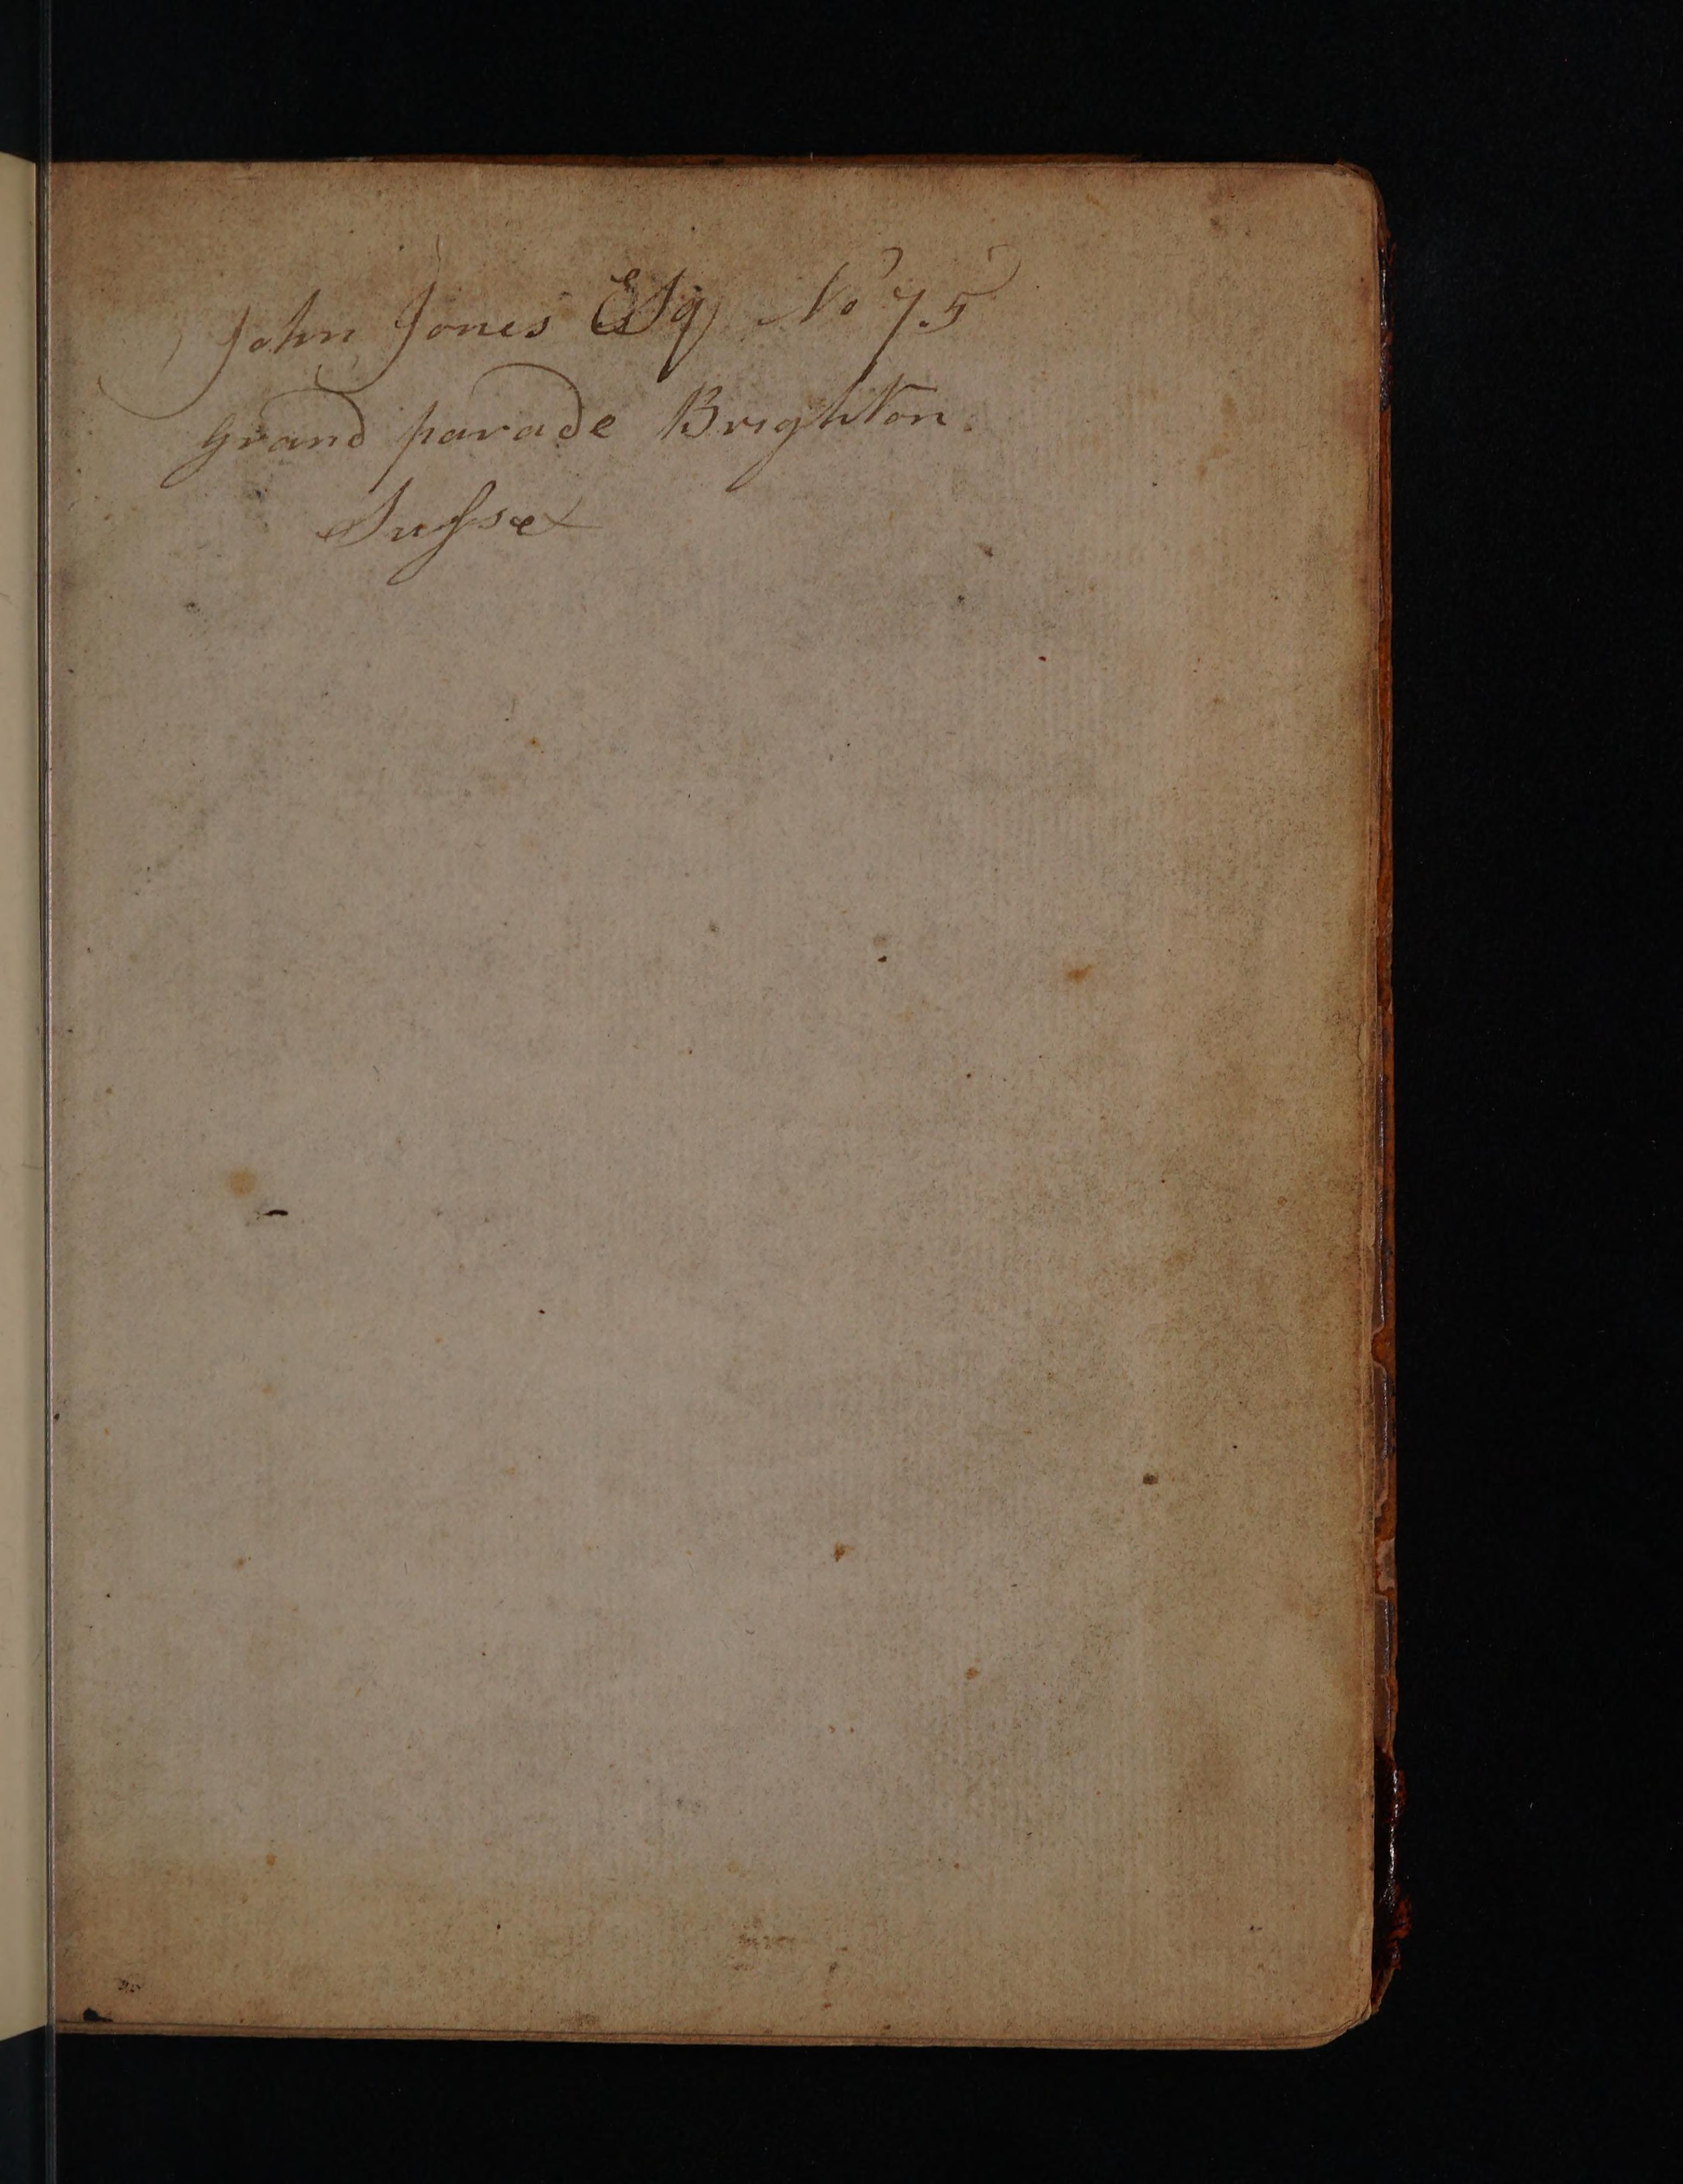 John Jones Esq No 75
Grand parade Brighton.
Sussex